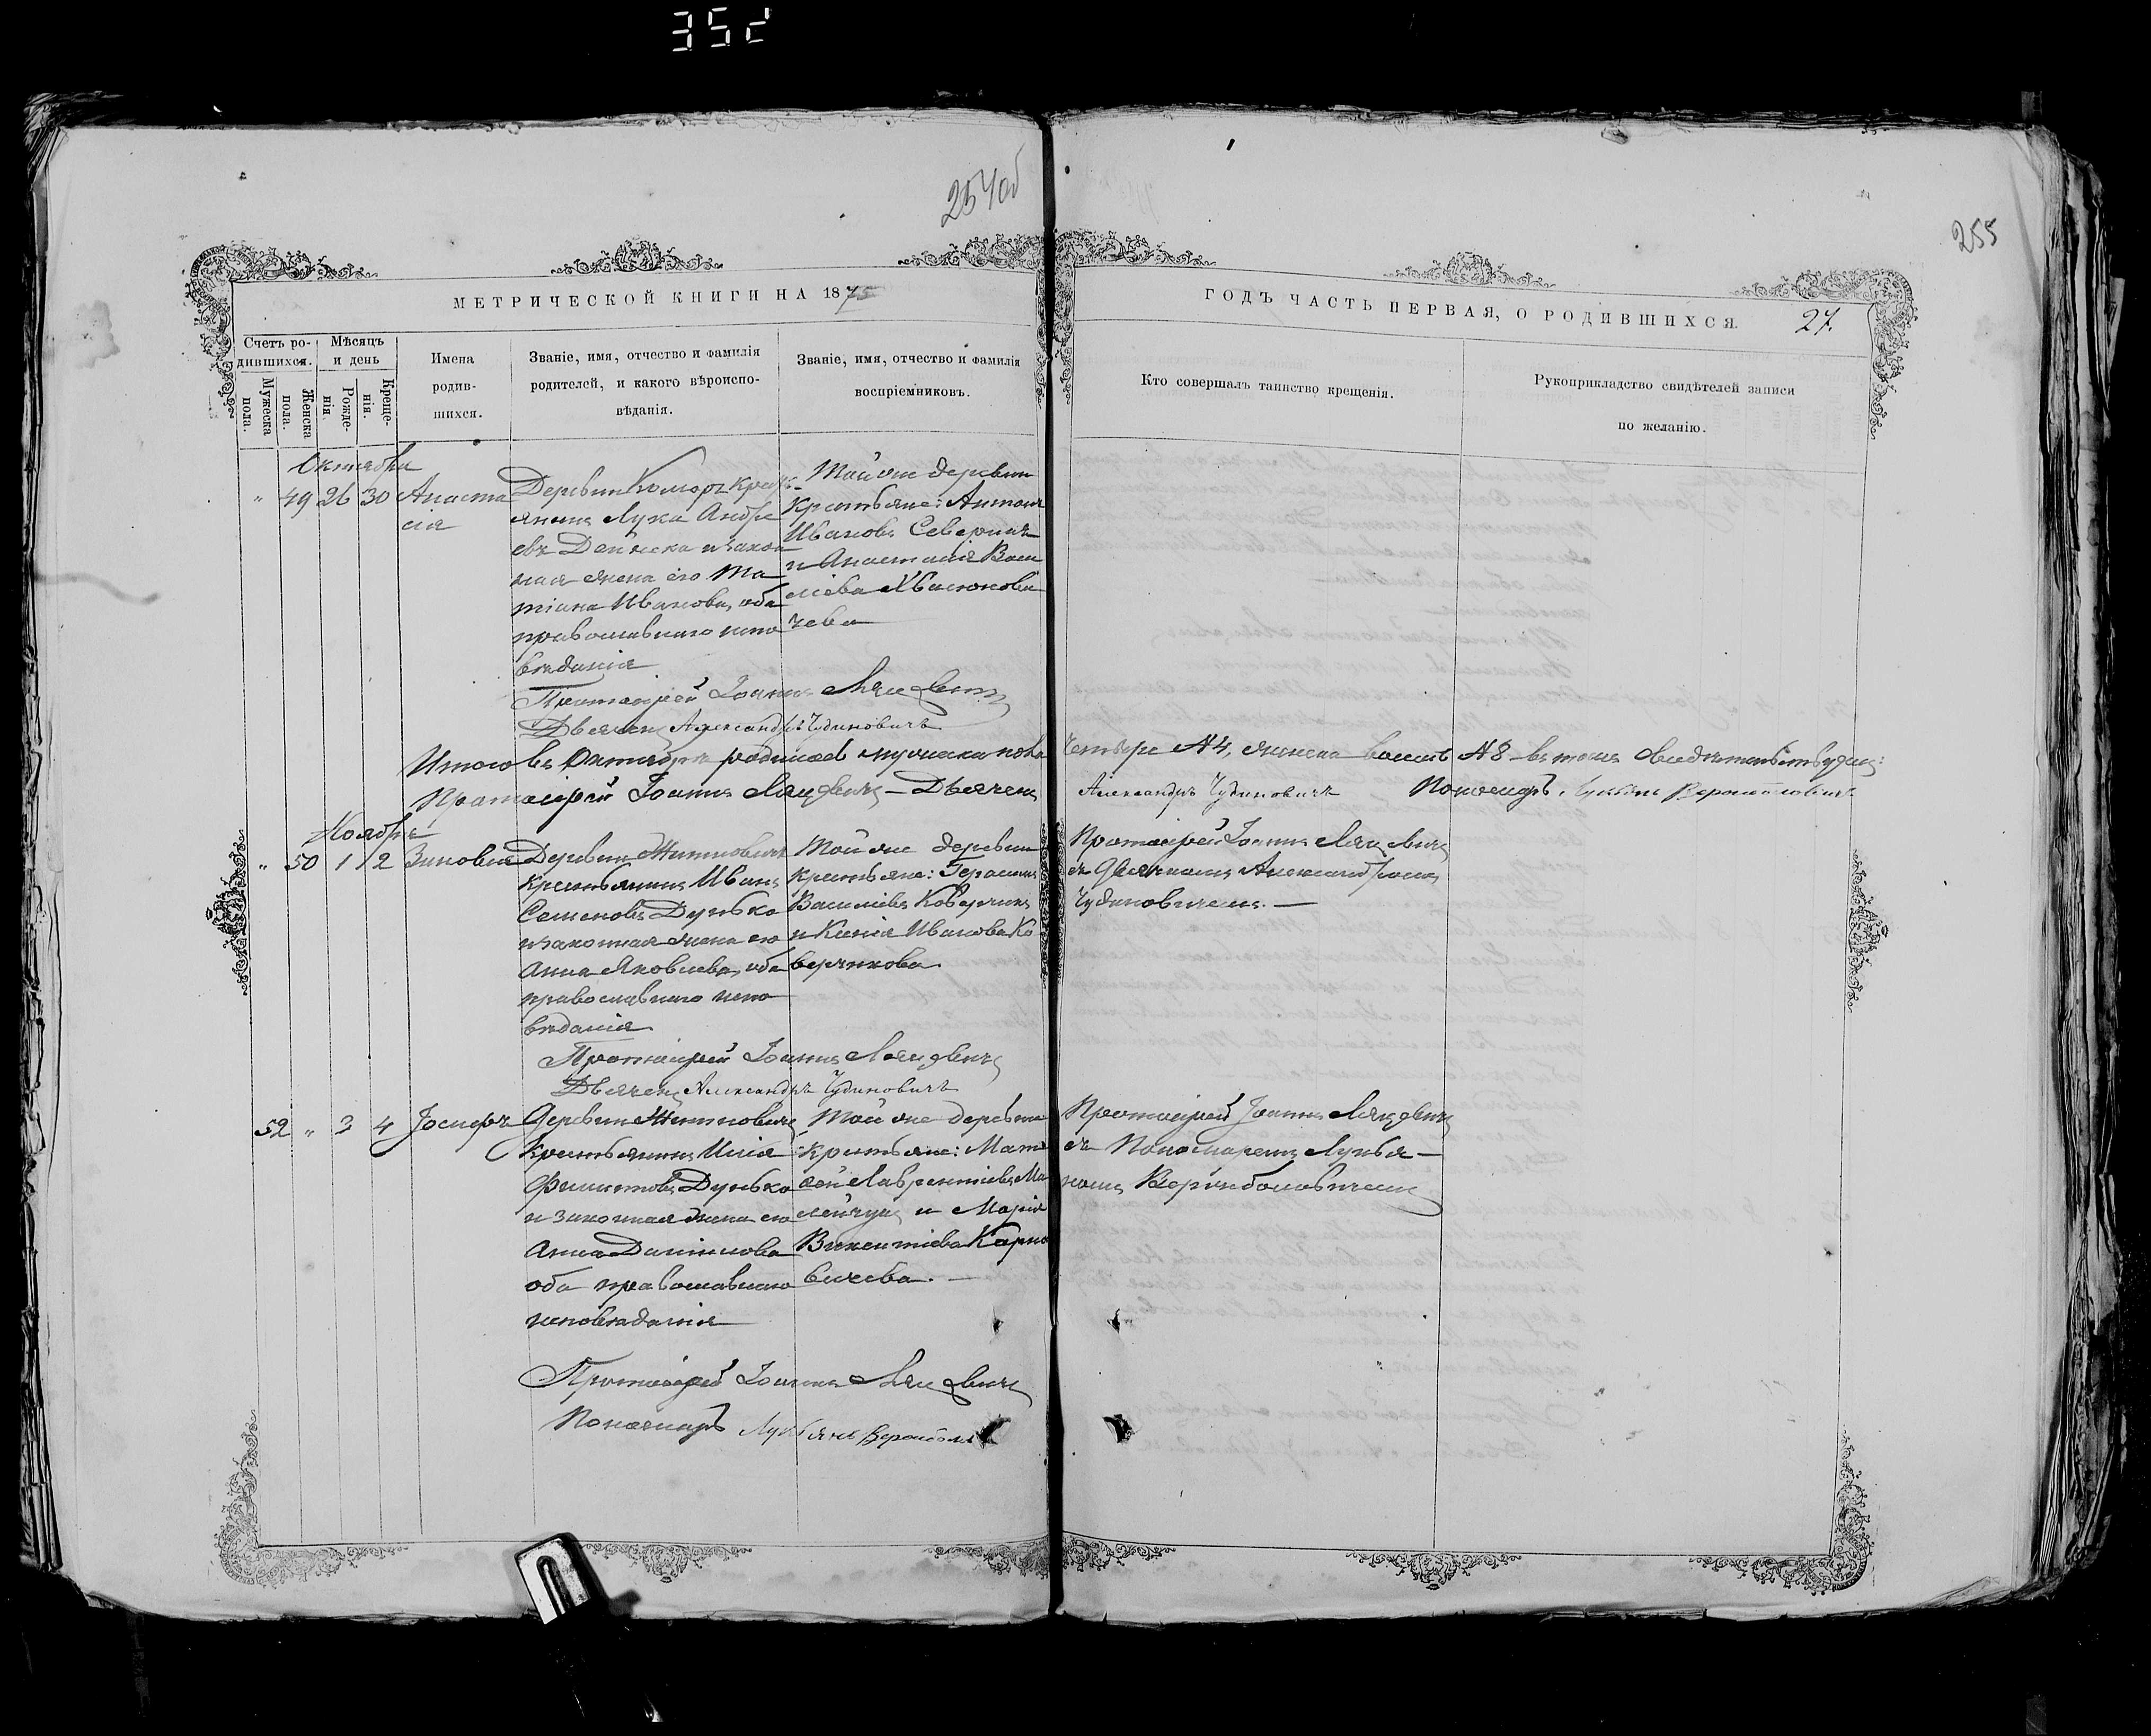 352
254об
255
МЕТРИЧЕСКОЙ КНИГИ НА 1875
ГОДЪ ЧАСТЬ ПЕРВАЯ, О РОДИВШИХСЯ.
27.
Счетъ родившихся.
Мужеска пола.
Женска пола.
Мѣсяцъ и день
Рожденія.
Крещенія.
Имена
родив-
шихся.
Званіе, имя, отчество и фамилія
родителей, и какого вѣроиспо-
вѣданія.
Званіе, имя, отчество и фамилія
воспріемниковъ.
Кто совершалъ таинство крещенія.
Рукоприкладство свидѣтелей записи
по желанію.
Октября
" 49 26 30
Анаста
сія
Деревни Коморъ крест
янинъ Лука Андре
евъ Дейнека и закон
ная жена его Та
тіана Иванова, оба
православнаго испо
вѣданія
Той же деревни
Крестьяне: Антонъ
Ивановъ
и Анастасія Васи
ліева
чева
Протоіерей Іоаннъ
Дьячекъ Александръ Чудиновичъ
Итого въ Октябрѣ родилось мужеска пола
четыре №4, женска восемь №8 въ томъ свидѣтельствуемъ:
Протоіерей Іоаннъ Дьячекъ
Александръ Чудиновичъ Пономарь Лукьянъ
Ноября
" 50 1 2 Зиновія
Деревни Житковичъ
крестьянинъ Иванъ
Семеновъ Дунько
и законная жена его
Анна Яковлева, оба
православнаго испо
вѣданія
Той же деревни
крестьяне: Герасимъ
Василіевъ
и Ксенія Иванова
Протоіерей Іоаннъ
съ Дьячкомъ Александромъ
Чудиновичемъ. —
Протоіерей Іоаннъ
Дьячекъ Александръ Чудиновичъ
52 " 3 4 Іосифъ
Деревни Житковичъ
Крестьянинъ Илія
Филиповъ Дунько
и законная жена его
Анна Даніилова
оба православнаго
исповѣданія
Той же деревни
крестьяне: Мат
ѳей Лаврентіевъ Ма
лейчукъ и Марія
Викентіева Карпо
вичева. —
Протоіерей Іоаннъ
съ Пономаремъ Лукья-
номъ
Протоіерей Іоаннъ
Пономарь Лукьянъ